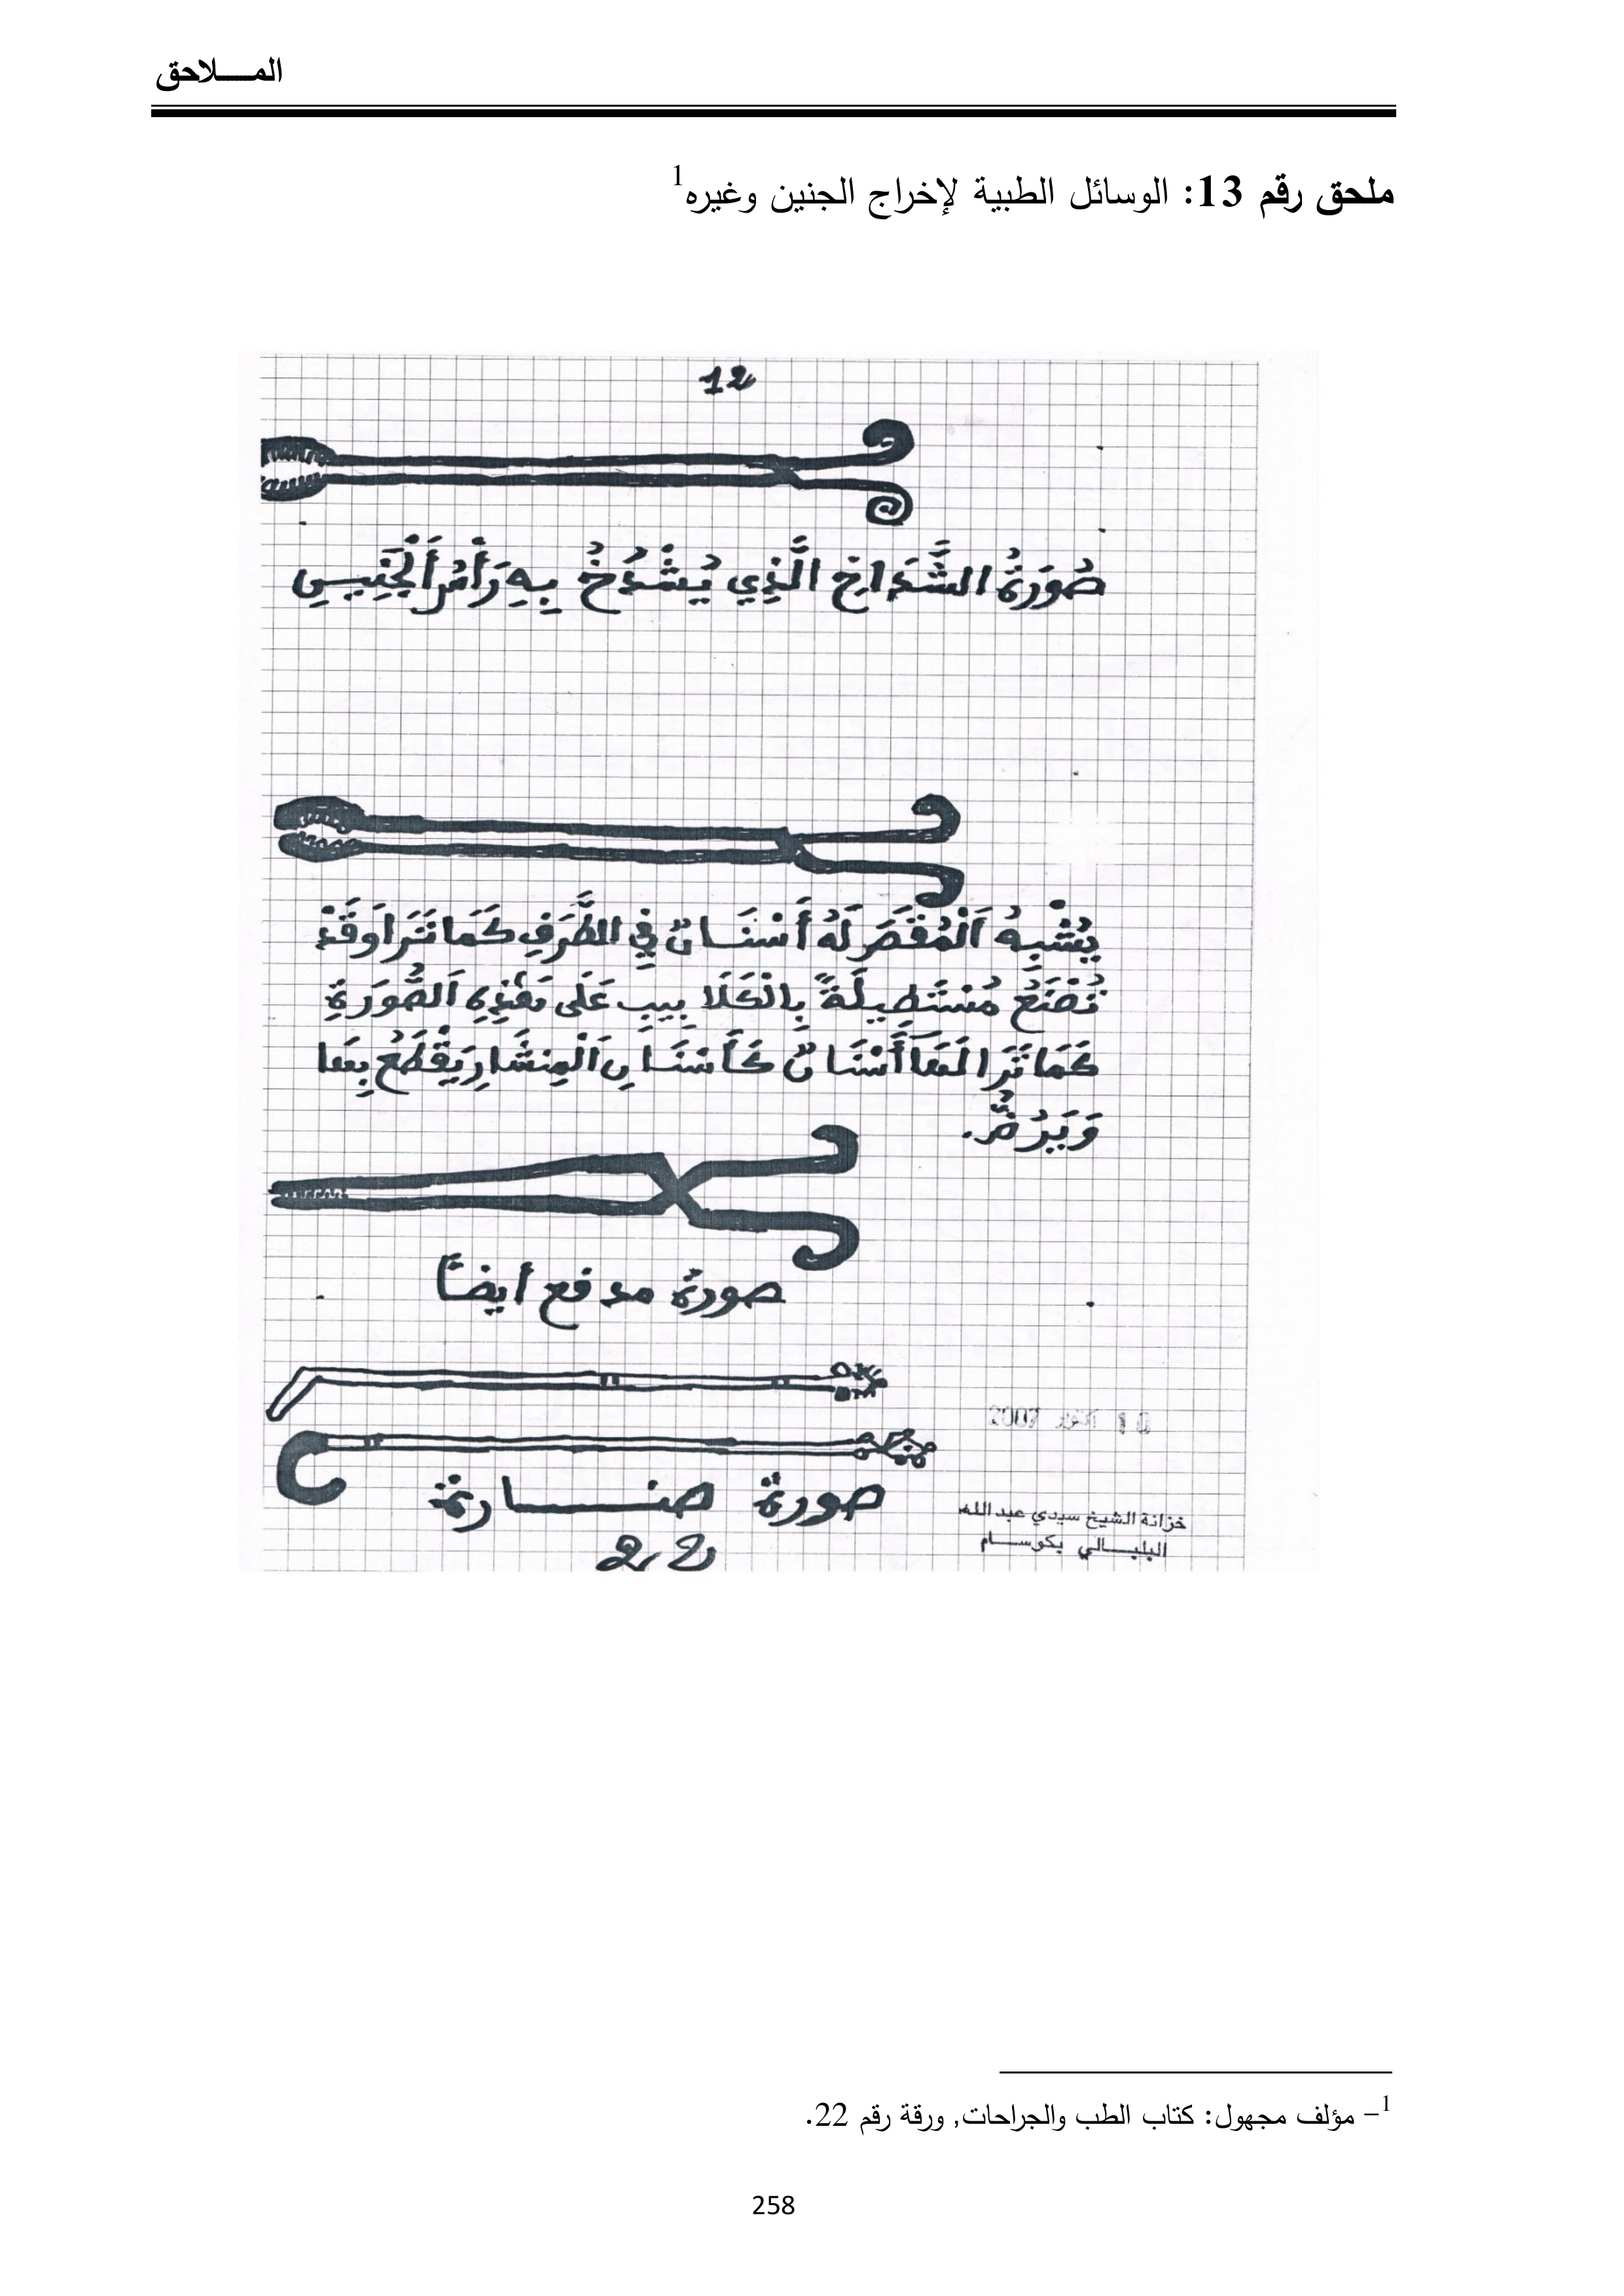 المـــــلاحق
ملحق رقم 13: الوسائل الطبية لإخراج الجنين وغيره1
12
صُورَةُ الشَّدَاخِ الَّذِي يُشْدَخُ بِهِ رَأْسُ الْجَنِيـنِ
يُشْبِهُ الْمُقَصَ لَهُ أَسْنَـانٌ فِي الطَّرَفِ كَمَا تَرَا وَقَدْ
تُصْنَعُ مُسْتَطِيلَةً بِالْكَلَا بِيبِ عَلَى هَذِهِ الصُّورَةِ
كَمَا تَرَا لَهَا أَسْنَانٌ كَأَسْنَـانِ الْمِنشَارِ يَقْطَعُ بِهَا
وَيَرُضُّ.
صورة مدفع أيضا
صورة صنـــــارة
22
خزانة الشيخ سيدي عبد الله
البلبـــالي بكوســـام
1– مؤلف مجهول: كتاب الطب والجراحات, ورقة رقم 22.
258